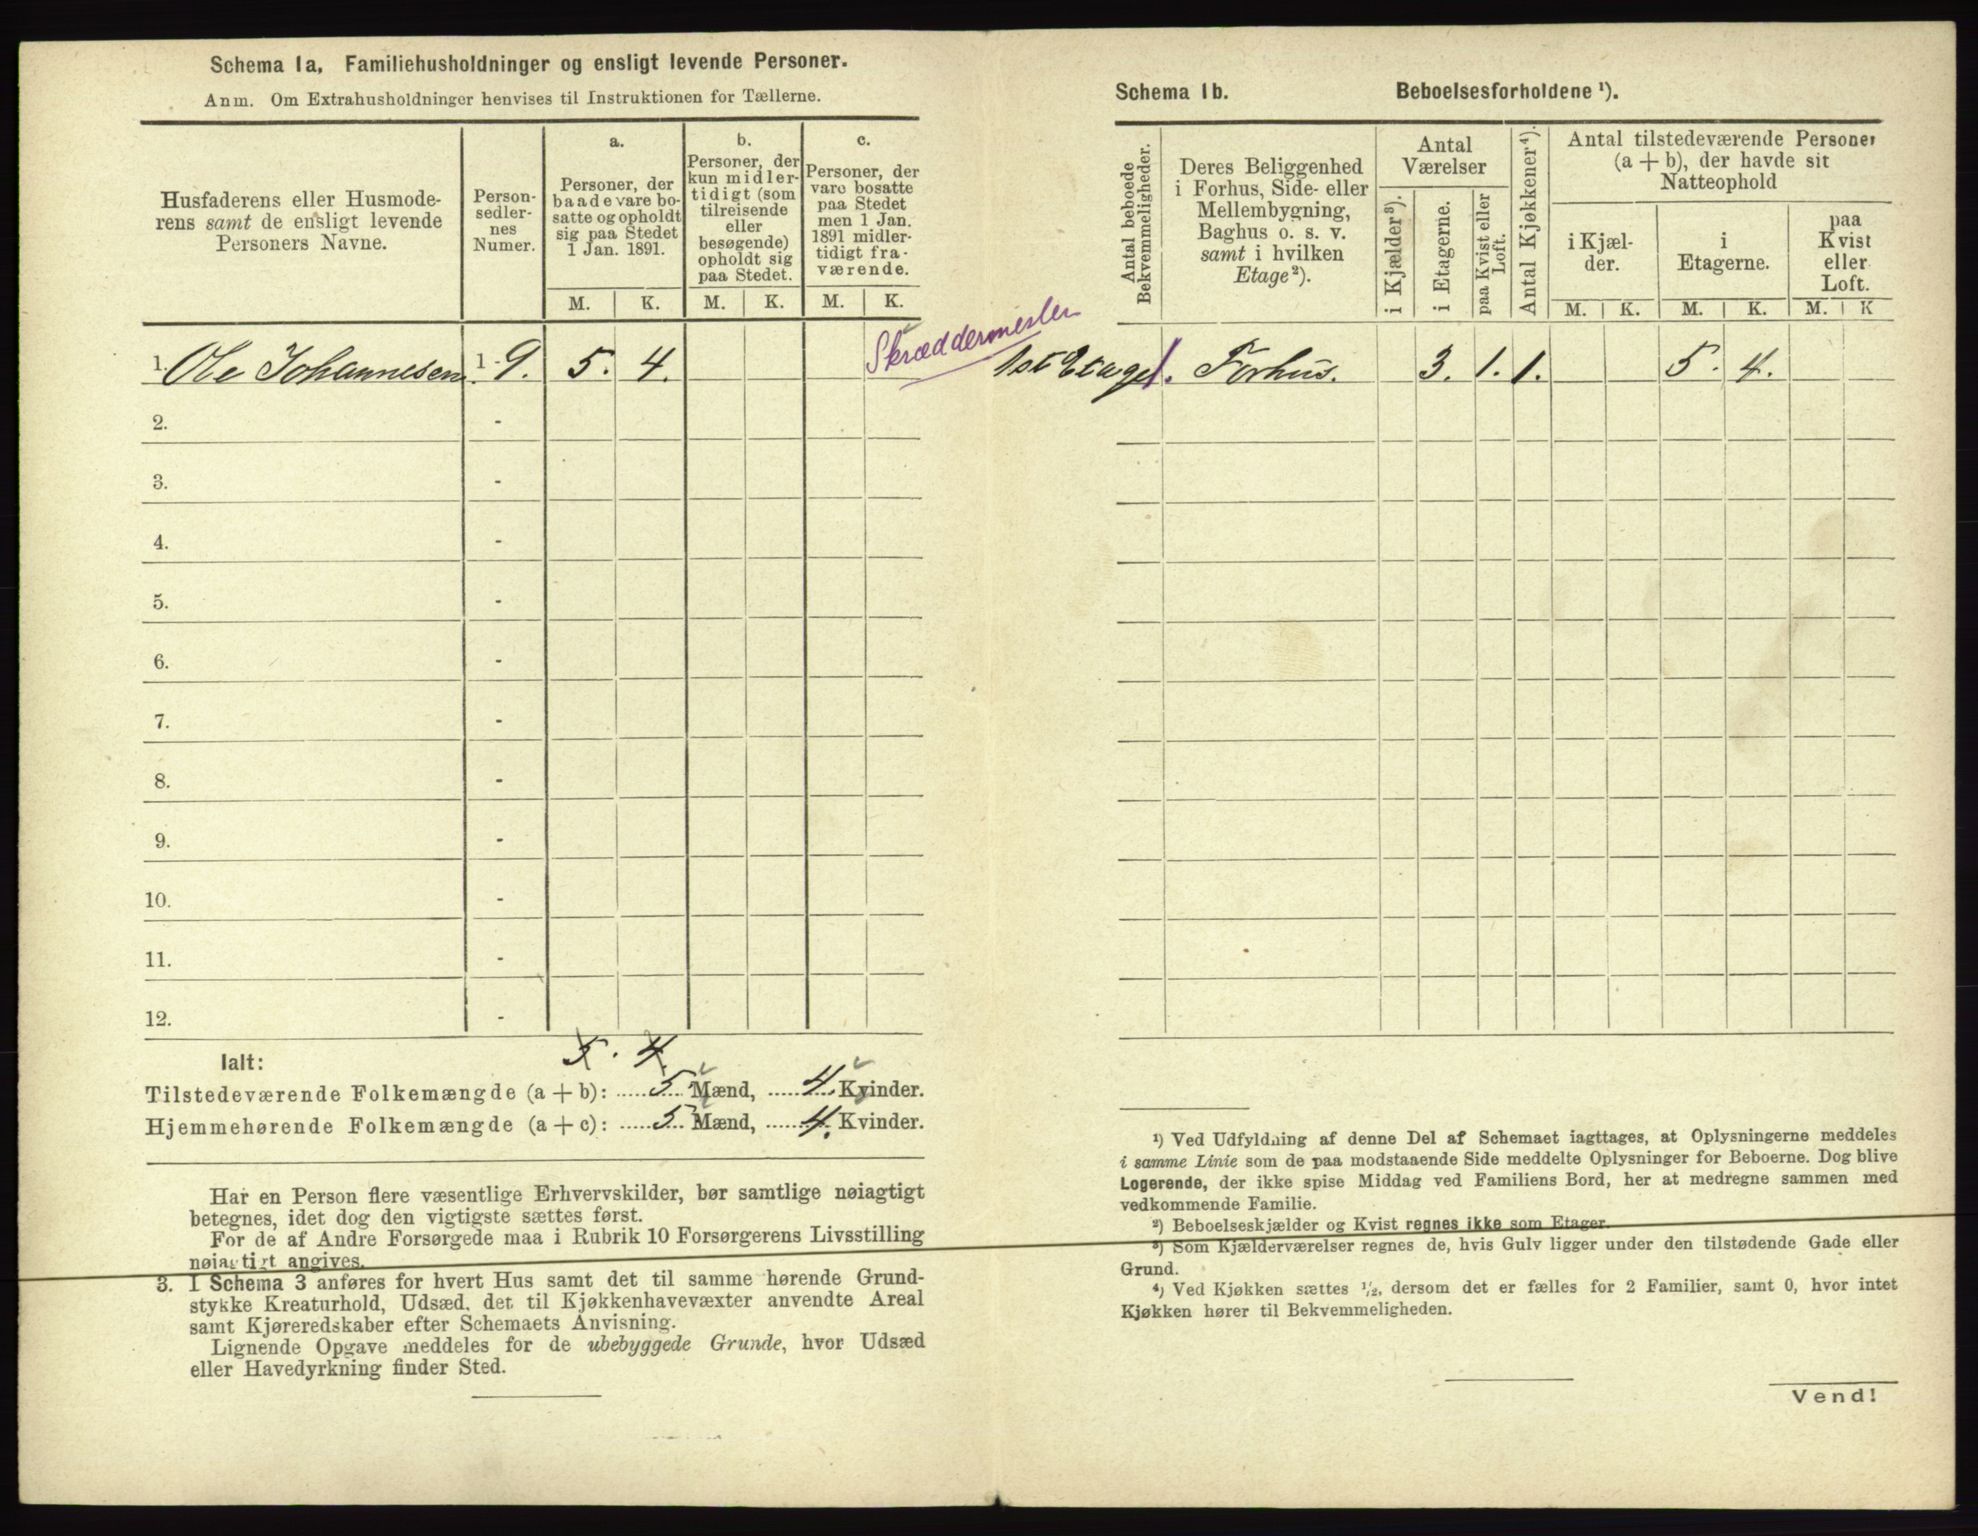 Schema 1a, Familiehusholdninger og ensligt levende Personer.
Anm. Om Extrahusholdninger henvises til Instruktionen for Tællerne.
Husfaderens eller Husmode-
rens samt de ensligt levende
Personers Navne.
Person-
sedler-
nes
Numer.
a.
Personer, der
baade vare bo-
satte og opholdt
sig paa Stedet
1 Jan. 1891.
b.
Personer, der
kun midler-
tidigt (som
tilreisende
eller
besøgende)
opholdt sig
paa Stedet.
c.
Personer, der
vare bosatte
paa Stedet
men 1 Jan.
1891 midler-
tidigt fra-
værende.
M. K. M. K. M. K.
1. Ole Johannesen 1-9. 5. 4. Skræddermester
2. -
3. -
4. -
5. -
6. -
7. -
8. -
9. -
10. -
11. -
12. -
5. 4.
Ialt:
Tilstedeværende Folkemængde (a + b): 5 Mænd, 4 Kvinder.
Hjemmehørende Folkemængde (a + c): 5 Mænd, 4. Kvinder.
Har en Person flere væsentlige Erhvervskilder, bør samtlige nøiagtigt
betegnes, idet dog den vigtigste sættes først.
For de af Andre Forsørgede maa i Rubrik 10 Forsørgerens Livsstilling
nøiagtigt angives.
3. I Schema 3 anføres for hvert Hus samt det til samme hørende Grund-
stykke Kreaturhold, Udsæd, det til Kjøkkenhavevæxter anvendte Areal
samt Kjøreredskaber efter Schemaets Anvisning.
Lignende Opgave meddeles for de ubebyggede Grunde, hvor Udsæd
eller Havedyrkning finder Sted.
Schema 1b. Beboelsesforholdene ¹).
Antal beboede
Bekvemmeligheder.
Deres Beliggenhed
i Forhus, Side- eller
Mellembygning,
Baghus o. s. v.
samt i hvilken
Etage²).
Antal
Værelser
i Kjælder³).
i Etagerne.
paa Kvist eller
Loft.
Antal Kjøkkener⁴).
Antal tilstedeværende Personer
(a + b), der havde sit
Natteophold
i Kjæl-
der.
i
Etagerne.
paa
Kvist
eller
Loft.
M. K. M. K. M. K
1ste Etage 1. Forhus. 3. 1. 1. 5. 4.
¹) Ved Udfyldning af denne Del af Schemaet iagttages, at Oplysningerne meddeles
i samme Linie som de paa modstaaende Side meddelte Oplysninger for Beboerne. Dog blive
Logerende, der ikke spise Middag ved Familiens Bord, her at medregne sammen med
vedkommende Familie.
²) Beboelseskjælder og Kvist regnes ikke som Etager.
³) Som Kjælderværelser regnes de, hvis Gulv ligger under den tilstødende Gade eller
Grund.
⁴) Ved Kjøkken sættes ½, dersom det er fælles for 2 Familier, samt 0, hvor intet
Kjøkken hører til Bekvemmeligheden.
Vend!